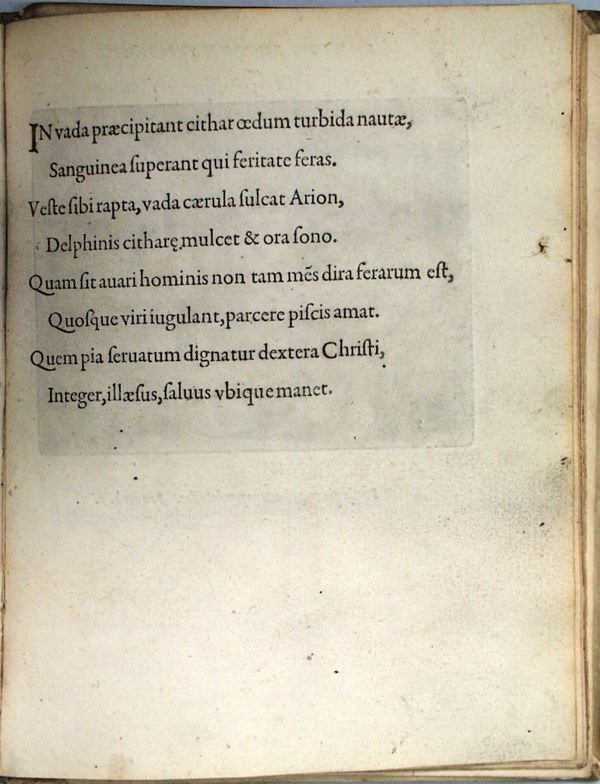 IN vada præcipitant citharœdum turbida nautæ,
Sanguinea ſuperant qui feritate feras.
Veſte ſibi rapta, vada cærula ſulcat Arion,
Delphinis citharę, mulcet & ora ſono.
Quam ſit auari hominis non tam mẽs dira ferarum eſt,
Quoſque viri iugulant, parcere piſcis amat.
Quem pia ſeruatum dignatur dextera Chriſti,
Integer, illæſus, ſaluus vbique manet.